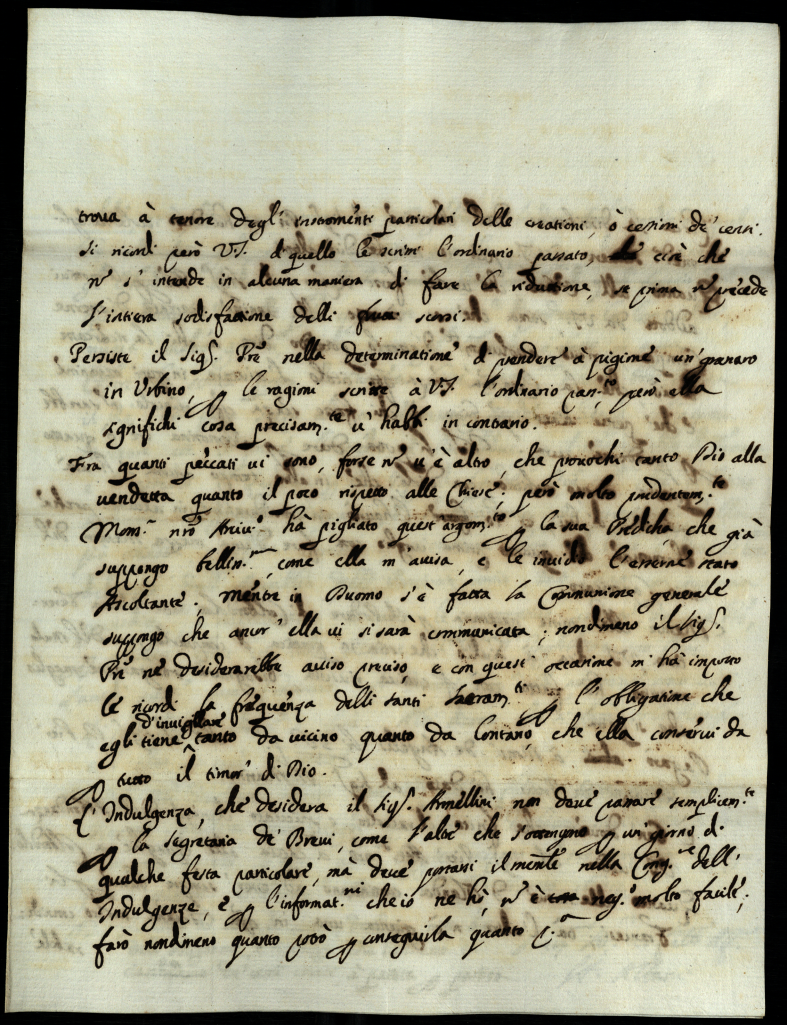 trova à tenore degl'instromenti particolari delle creationi, ò cessioni de' censi.
Si ricordi però V.S. di quello le scrissi l'ordinario passato, cioè che
nõ s'intende in alcuna maniera di fare la riduttione, se prima nõ precede
l'intiera sodisfattione delli scorsi.
Persiste il Sigr. Prẽ nella determinatione di prendere à pigione un granaro
in Urbino, ꝑ le ragioni scritte à V.S. l'ordinario pass.to però ella
significhi cosa precisam.te v'habbi in contrario.
Frà quanti peccati vi sono, forse nõ v'è altro, che provochi tanto Dio alla
vendetta quanto il poco rispetto alle Chiese; però molto prudentem.te
Mons.r nrõ Arciv.o hà pigliato quest'argom.to ꝑ la sua Predicha, che già
suppongo belliss.ma, come ella m'avisa, e le invidio l'esserne stato
Ascoltante. Mentre in Duomo s'è fatta la Communione generale
suppongo che ancor'ella vi si sarà communicata; nondimeno il Sigr.
Prẽ ne desiderarebbe aviso preciso, e con quest'occasione m'hà imposto
le ricordi la frequenza delli santi Sacram.ti ꝑ l'obligatione che
egli tiene d'invigilare tanto da vicino quanto da lontano, che ella conservi da
ꝑ tutto il timor di Dio.
L'Indulgenza, che desidera il Sigr. Armellini non deve passare semplicem.te
ꝑ la Segretaria de' Brevi, come l'altre che s'ottengono ꝑ un giorno di
qualche festa particolare, mà deve portarsi il mente nella Cong.ne dell'
Indulgenze, e ꝑ l'informat.ni che io ne hò, nõ è neg.o molto facile;
farò nondimeno quanto potrò ꝑ conseguirla quanto p.a